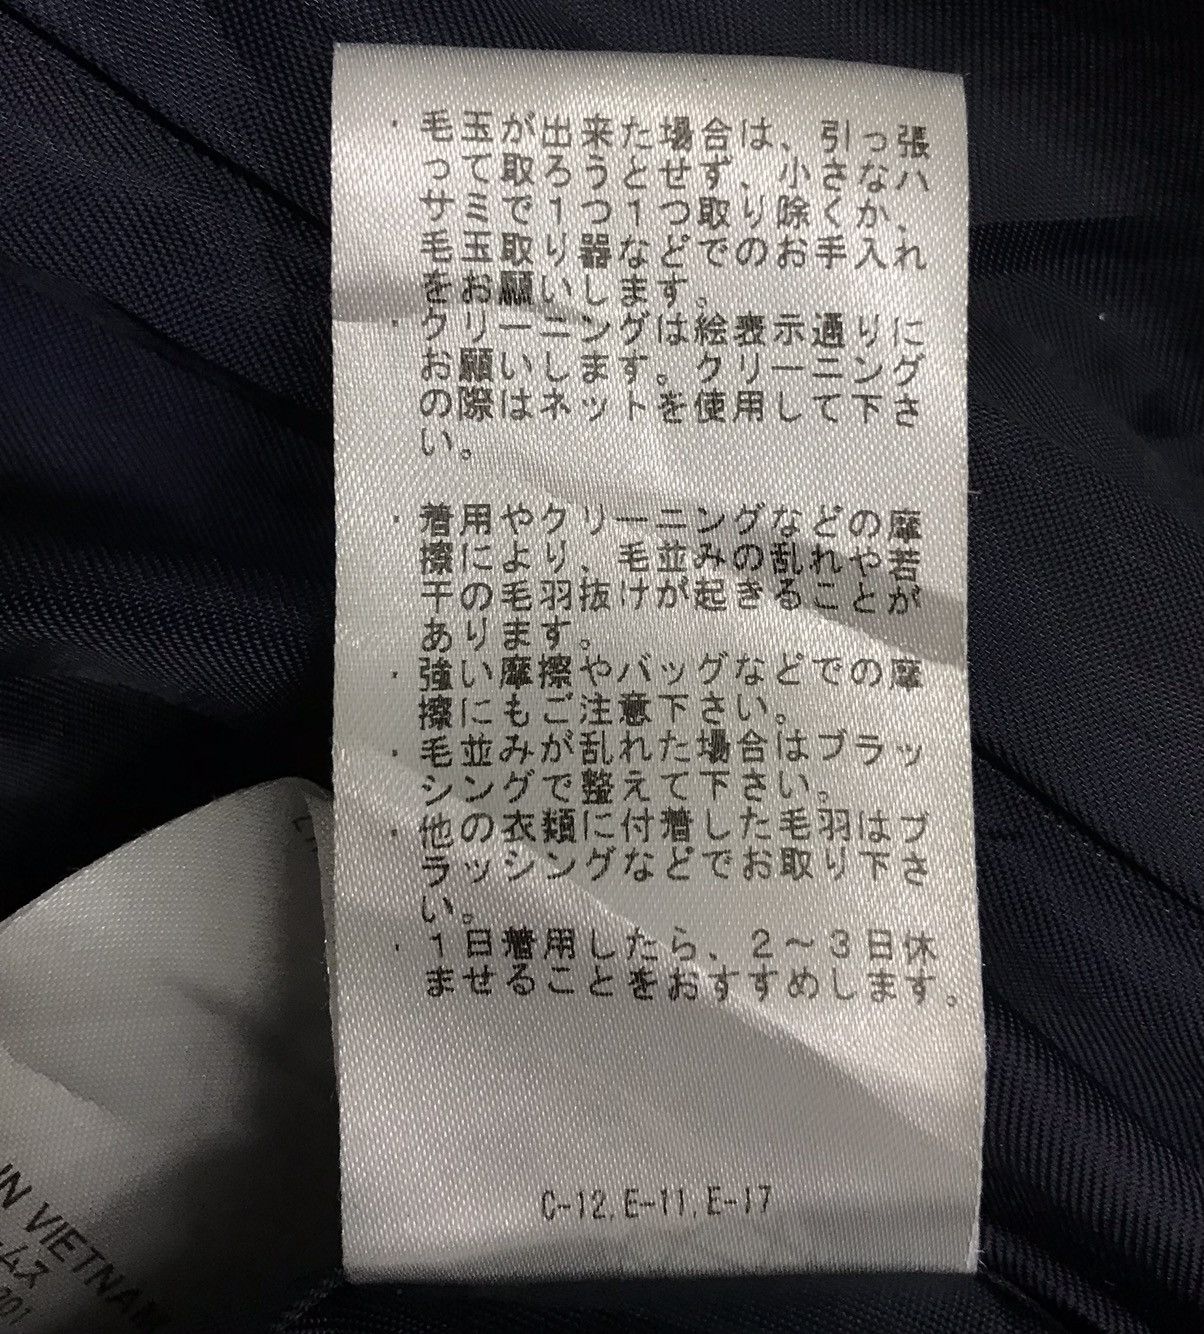 ・毛玉が出来た場合は、引っ張
って取ろうとせず、小さなハ
サミで1つ1つ取り除くか、
毛玉取り器などでのお手入れ
をお願いします。
・クリーニングは絵表示通りに
お願いします。クリーニング
の際はネットを使用して下さ
い。
・着用やクリーニングなどの摩
擦により、毛並みの乱れや若
干の毛羽抜けが起きることが
あります。
・強い摩擦やバッグなどでの摩
擦にもご注意下さい。
・毛並みが乱れた場合はブラッ
シングで整えて下さい。
・他の衣類に付着した毛羽はブ
ラッシングなどでお取り下さ
い。
・1日着用したら、2〜3日休
ませることをおすすめします。
C-12,E-11,E-17
IN VIETNAM
ームス
701